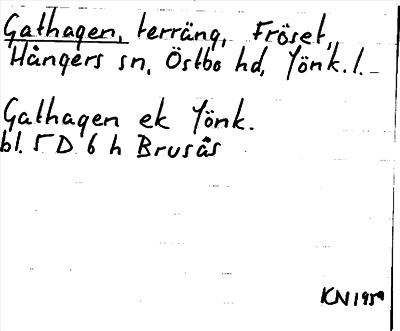 Gathagen, terräng, Fröset,
Hångers sn, Östbo hd, Jönk. l.
Gathagen ek Jönk.
bl. 5 D 6 h Brusås
KN 1959